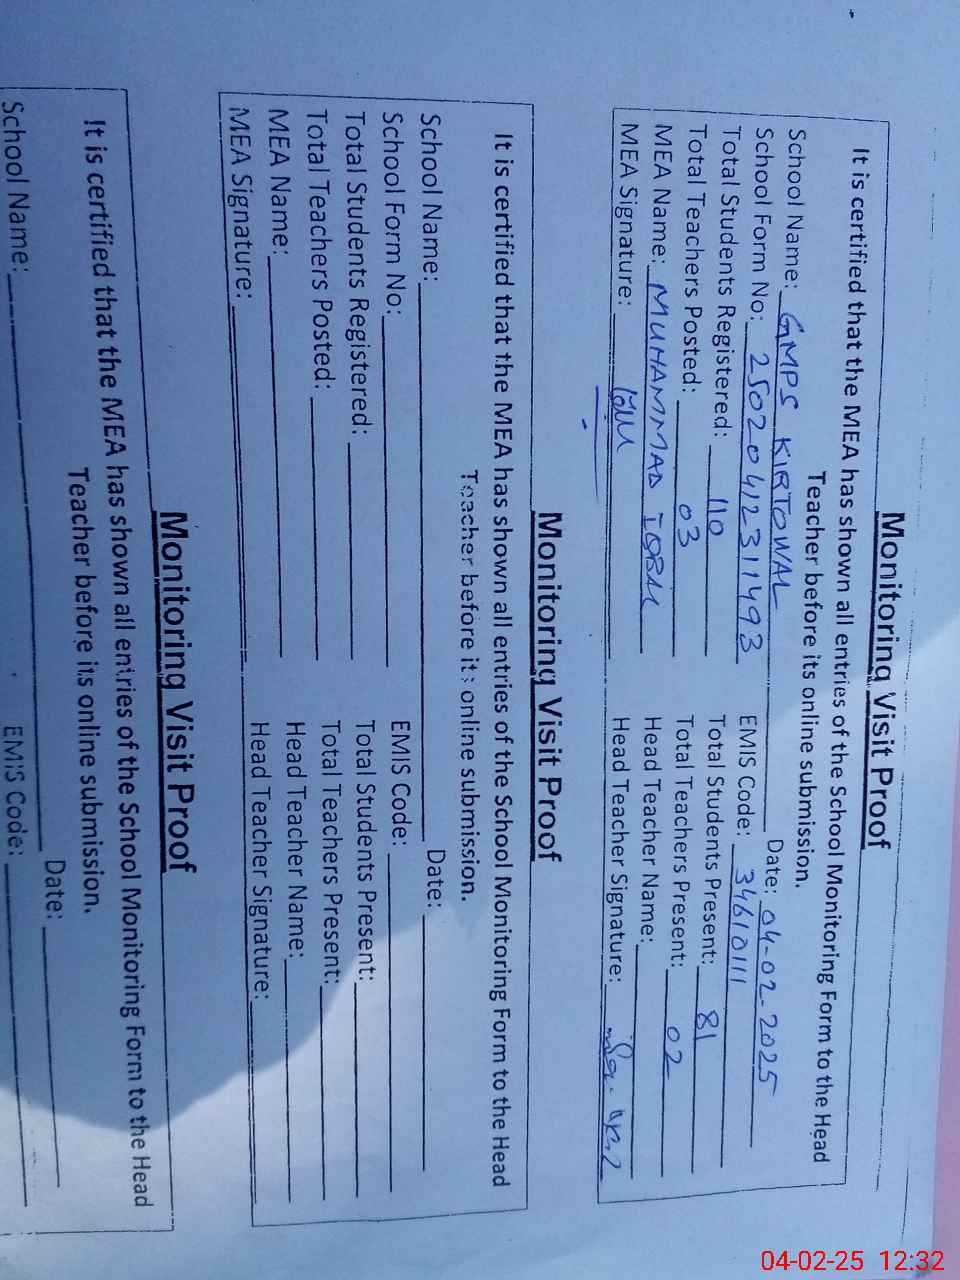 Monitoring Visit Proof
It is certified that the MEA has shown all entries of the School Monitoring Form to the Head
Teacher before its online submission.
School Name: GMPS KIRTOWAL Date: 04-02-2025
School Form No: 25020412311493 EMIS Code: 34610111
Total Students Registered: 110 Total Students Present: 81
Total Teachers Posted: 03 Total Teachers Present: 02
MEA Name: MUHAMMAD IQBAL Head Teacher Name:
MEA Signature: Head Teacher Signature:
Monitoring Visit Proof
It is certified that the MEA has shown all entries of the School Monitoring Form to the Head
Teacher before its online submission.
School Name: Date:
School Form No: EMIS Code:
Total Students Registered: Total Students Present:
Total Teachers Posted: Total Teachers Present:
MEA Name: Head Teacher Name:
MEA Signature: Head Teacher Signature:
Monitoring Visit Proof
It is certified that the MEA has shown all entries of the School Monitoring Form to the Head
Teacher before its online submission.
School Name: Date:
EMIS Code:
04-02-25 12:32